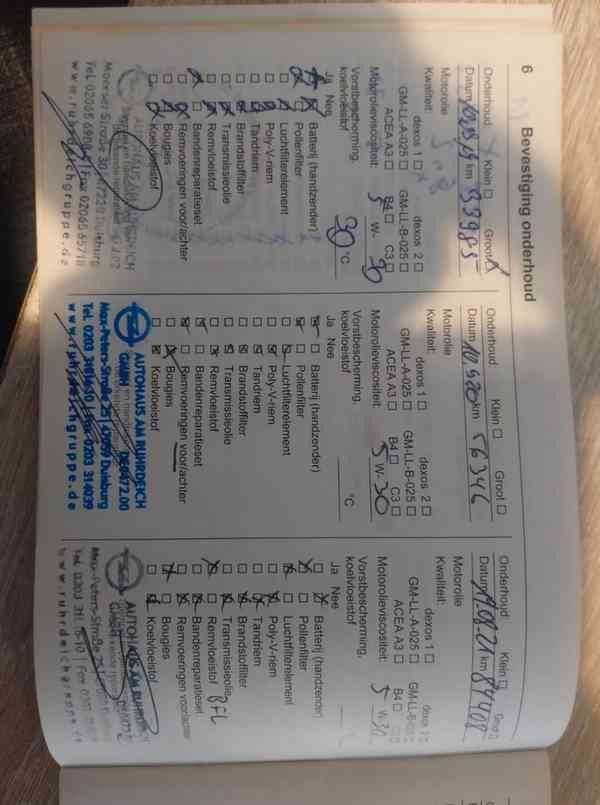 6 Bevestiging onderhoud
Onderhoud Klein ☐ Groot ☒
Datum km 33985
Motorolie
Kwaliteit: dexos 1 ☐ dexos 2 ☐
GM-LL-A-025 ☐ GM-LL-B-025 ☐
ACEA A3 ☐ B4 ☐ C3 ☐
Motorolieviscositeit: 5 W- 30
Vorstbescherming,
koelvloeistof 30 °C
Ja Nee
Batterij (handzender)
Pollenfilter
Luchtfilterelement
Poly-V-riem
Tandriem
Brandstoffilter
Transmissieolie
Remvloeistof
Bandenreparatieset
Remvoeringen voor/achter
Bougies
Koelvloeistof
AUTOHAUS AM RUHRDEICH
Moerser Straße 30 47228 Duisburg
www.ruhrdeichgruppe.de
Onderhoud Klein ☐ Groot ☐
Datum 10 9 20 km 56346
Motorolie
Kwaliteit: dexos 1 ☐ dexos 2 ☐
GM-LL-A-025 ☐ GM-LL-B-025 ☐
ACEA A3 ☐ B4 ☐ C3 ☐
Motorolieviscositeit: 5 W-30
Vorstbescherming,
koelvloeistof °C
Ja Nee
Batterij (handzender)
Pollenfilter
Luchtfilterelement
Poly-V-riem
Tandriem
Brandstoffilter
Transmissieolie
Remvloeistof
Bandenreparatieset
Remvoeringen voor/achter
Bougies
Koelvloeistof
AUTOHAUS AM RUHRDEICH
GMBH
Max-Peters-Straße 25 | 47059 Duisburg
www.ruhrdeichgruppe.de
Onderhoud Klein ☐ Groot ☐
Datum km 84408
Motorolie
Kwaliteit: dexos 1 ☐ dexos 2 ☐
GM-LL-A-025 ☐ GM-LL-B-025
ACEA A3 ☐ B4 ☐
Motorolieviscositeit: 5 W-30
Vorstbescherming,
koelvloeistof
Ja Nee
Batterij (handzender)
Pollenfilter
Luchtfilterelement
Poly-V-riem
Tandriem
Brandstoffilter
Transmissieolie
Remvloeistof
Bandenreparatieset
Remvoeringen voor/achter
Bougies
Koelvloeistof
AUTOHAUS AM RUHRDEICH
GMBH
Max-Peters-Straße 25
www.ruhrdeichgruppe.de